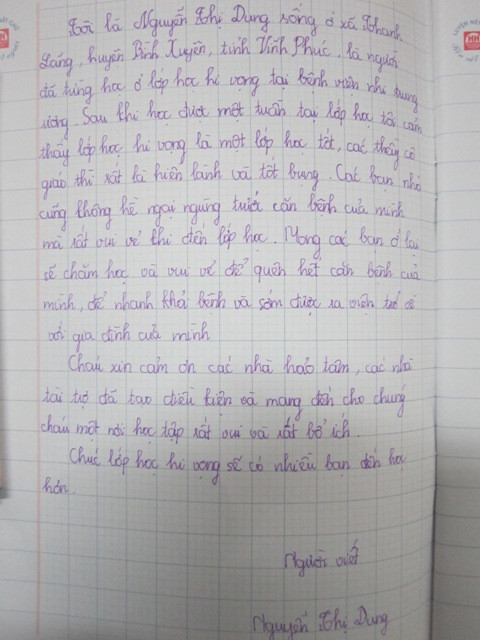 Tôi là Nguyễn Thị Dung sống ở xã Thanh
Lãng, huyện Bình Xuyên, tỉnh Vĩnh Phúc, là người
đã từng học ở lớp học hi vọng tại bệnh viện nhi trung
ương. Sau khi học được một tuần tại lớp học tôi cảm
thấy lớp học hi vọng là một lớp học tốt, các thầy cô
giáo thì rất là hiền lành và tốt bụng. Các bạn nhỏ
cũng không hề ngại ngùng trước căn bệnh của mình
mà rất vui vẻ khi đến lớp học. Mong các bạn ở lại
sẽ chăm học và vui vẻ để quên hết căn bệnh của
mình, để nhanh khỏi bệnh và sớm được ra viện trở về
với gia đình của mình
Cháu xin cảm ơn các nhà hảo tâm, các nhà
tài trợ đã tạo điều kiện và mang đến cho chúng
cháu một nơi học tập rất vui và rất bổ ích.
Chúc lớp học hi vọng sẽ có nhiều bạn đến học
hơn.
Người viết
Nguyễn Thị Dung